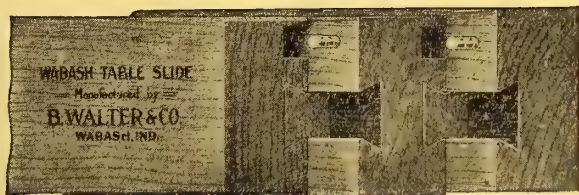 WABASH TABLE SLIDE
Manufactured by
B. WALTER & CO.
WABASH, IND.